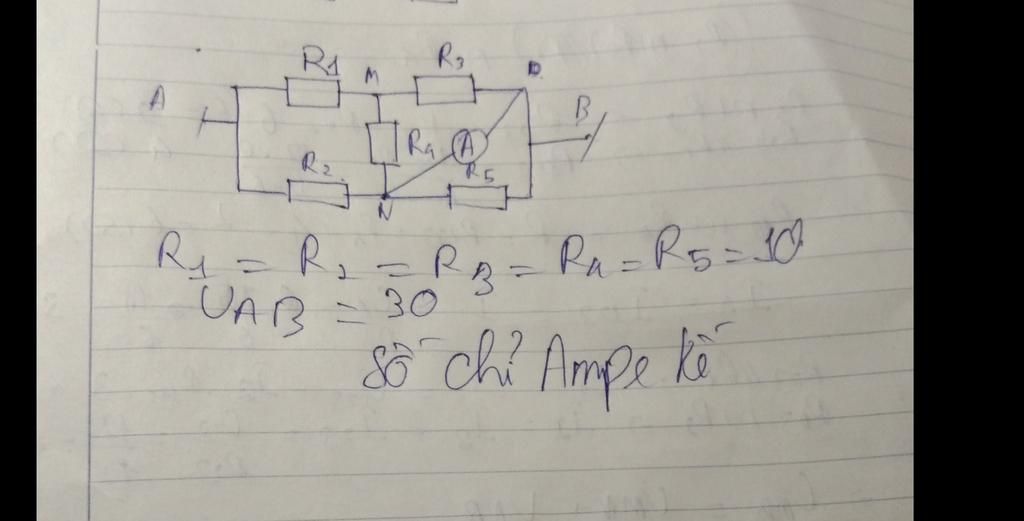 R1 M R3 D
A B
R4 A
R2 R5
N
R1 = R2 = R3 = R4 = R5 = 10
UAB = 30
Số chỉ Ampe kế